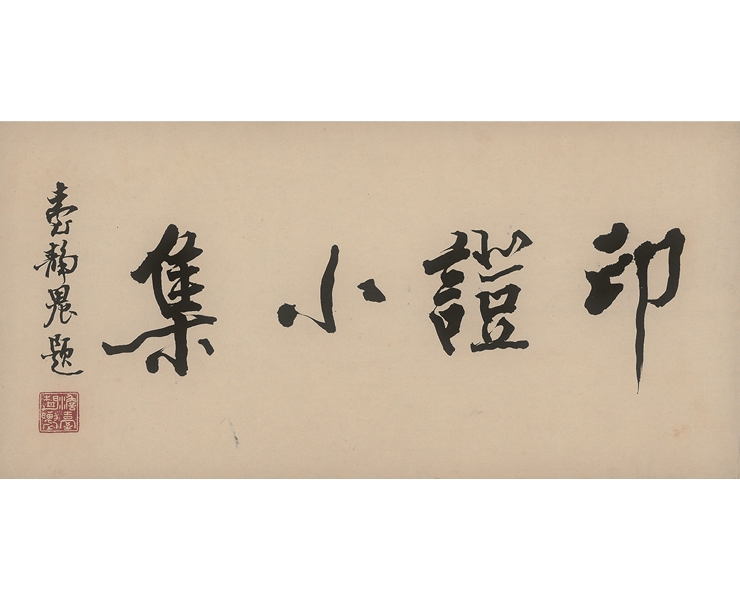 印證小集
臺靜農題